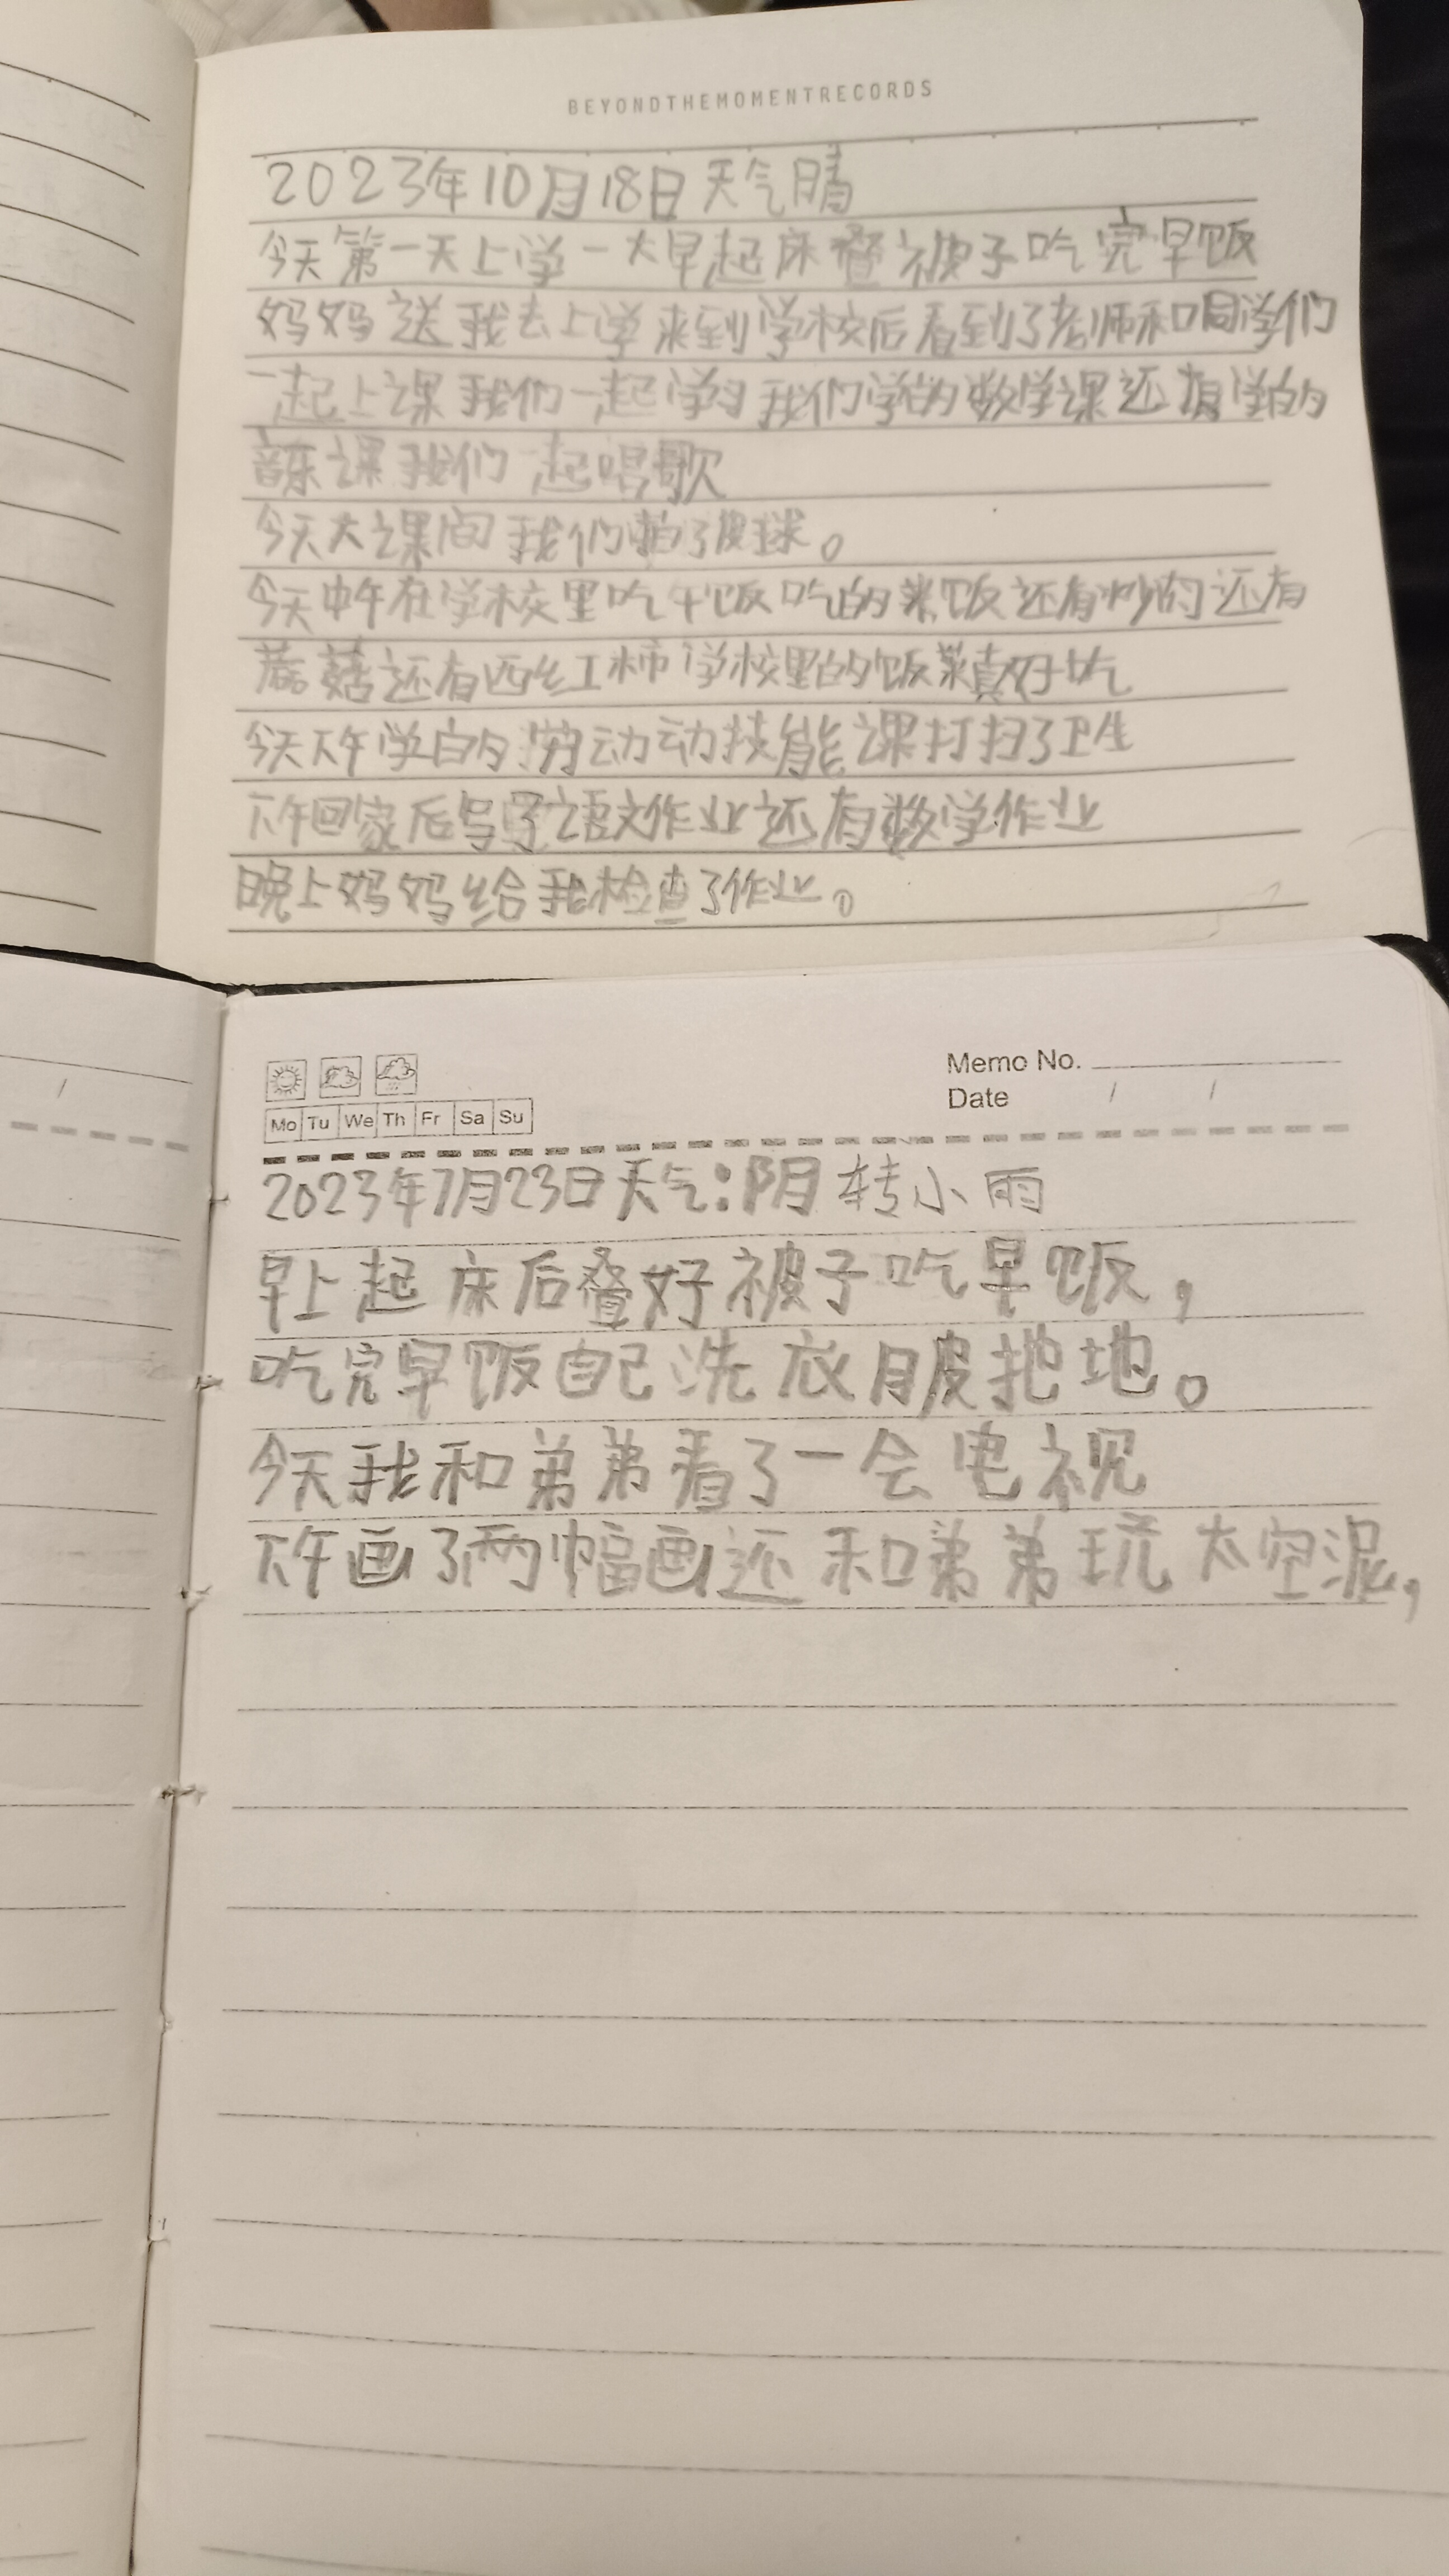 BEYONDTHEMOMENTRECORDS
2023年10月18日天气晴
今天第一天上学一大早起床叠被子吃完早饭
妈妈送我去上学来到学校后看到了老师和同学们
一起上课我们一起学习我们学的数学课还有学的
音乐课我们一起唱歌
今天大课间我们拍了皮球。
今天中午在学校里吃午饭吃的米饭还有炒肉还有
蘑菇还有西红柿学校里的饭菜真好吃
今天下午学的劳动动技能课打扫了卫生
下午回家后写了语文作业还有数学作业
晚上妈妈给我检查了作业。
Memo No.
Mo Tu We Th Fr Sa Su
Date / /
2023年7月23日天气:阴转小雨
早上起床后叠好被子吃早饭,
吃完早饭自己洗衣服拖地。
今天我和弟弟看了一会电视
下午画了两幅画还和弟弟玩太空泥,